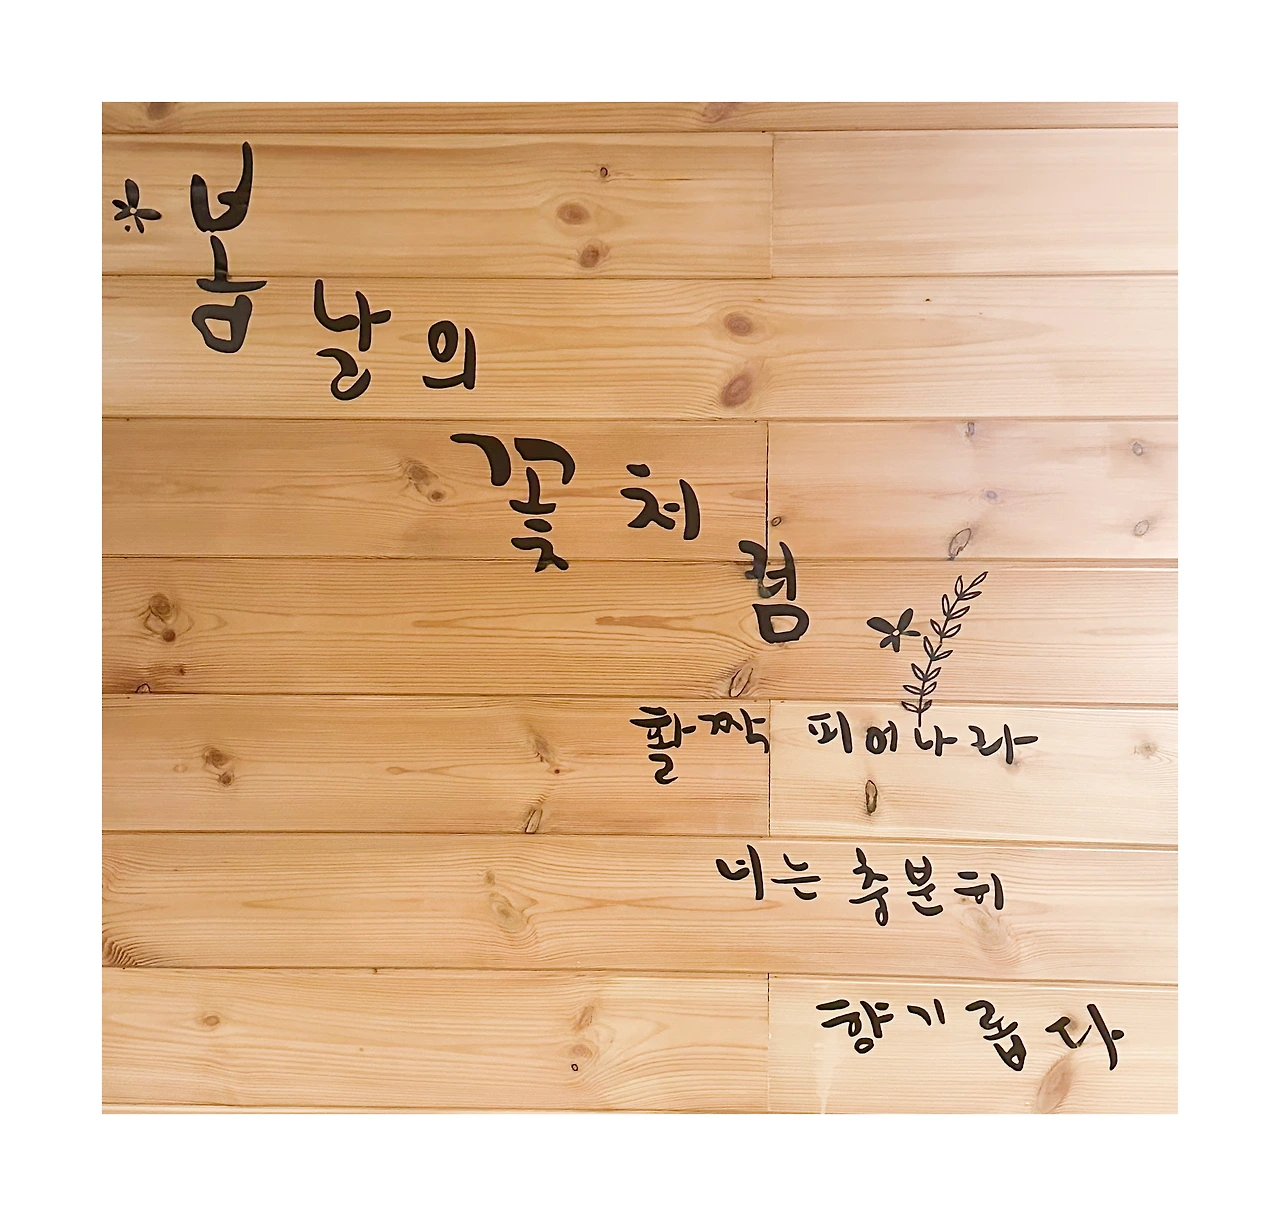 봄날의
꽃처럼
활짝 피어나라
너는 충분히
향기롭다